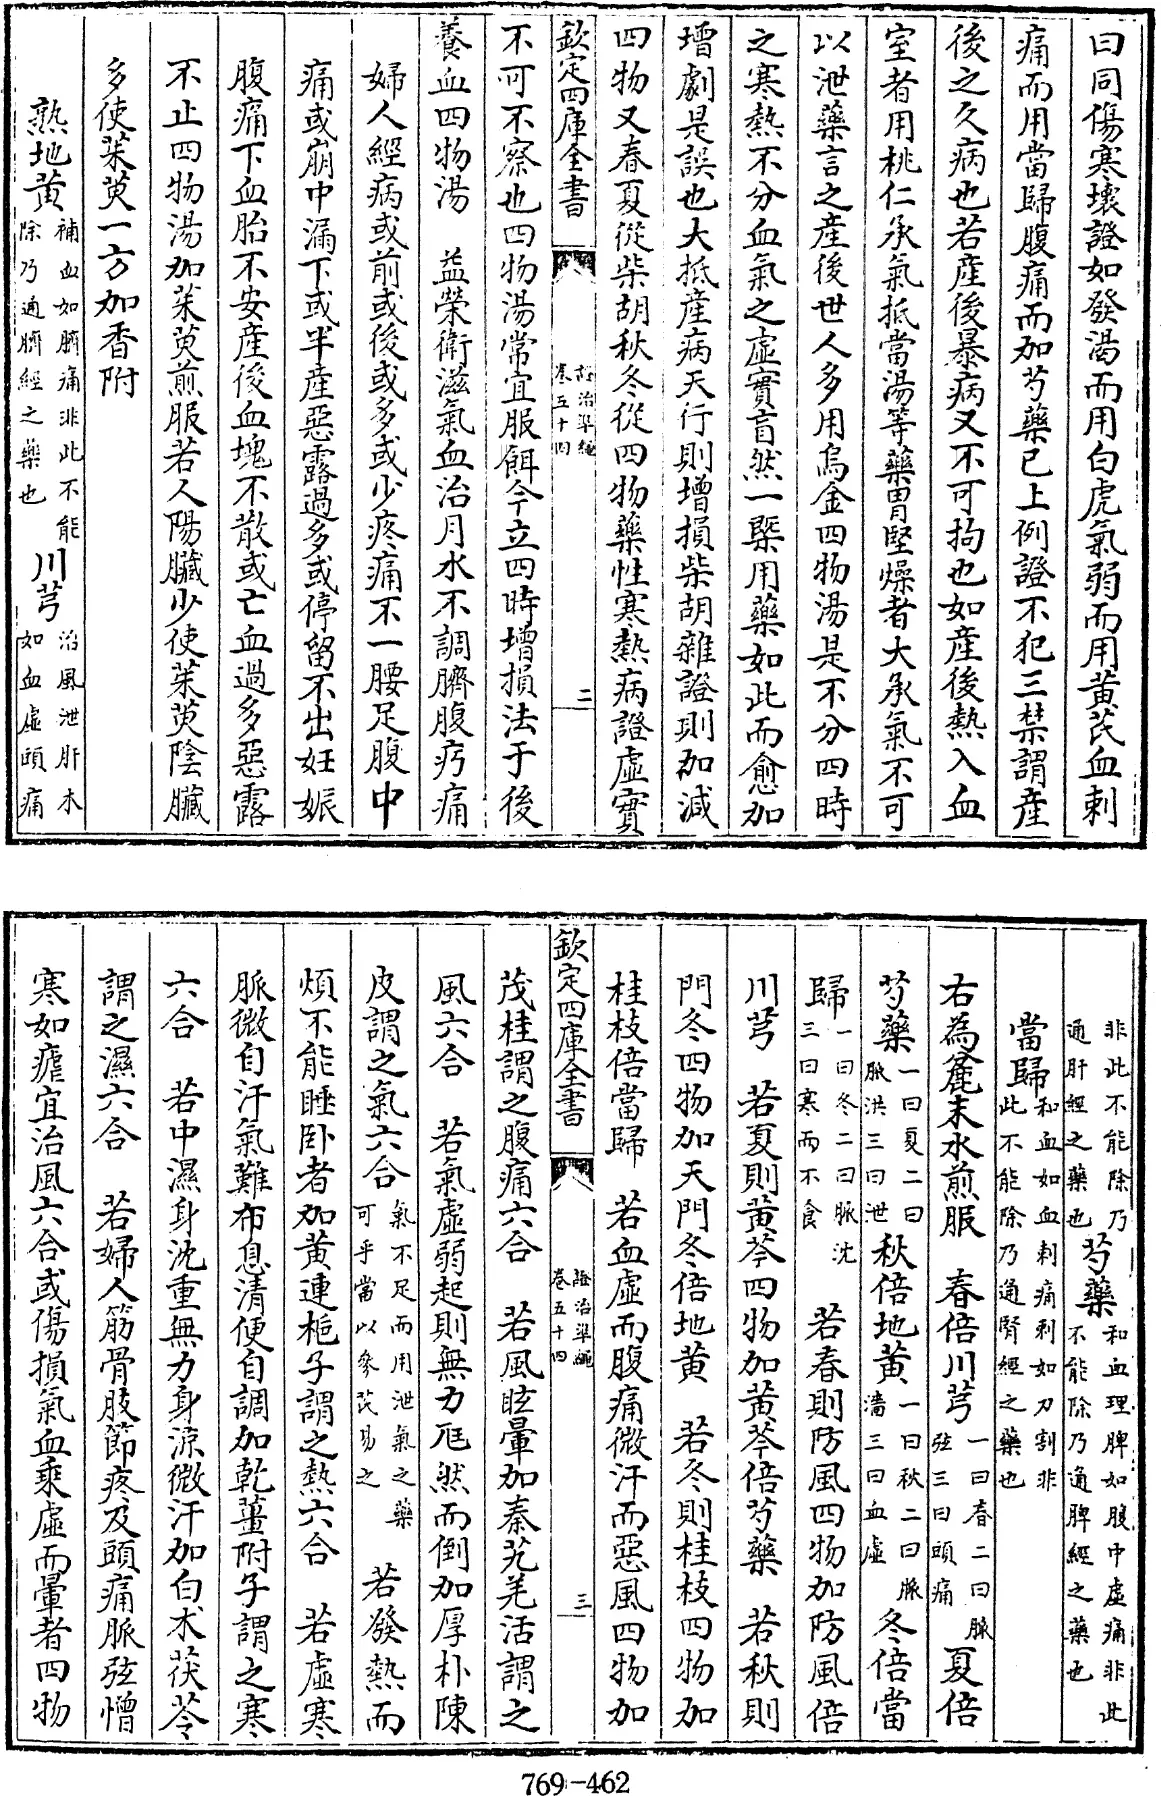 曰同傷寒壞證如發渴而用白虎氣弱而用黃芪血刺
痛而用當歸腹痛而加芍藥已上例證不犯三禁謂產
後之久病也若產後暴病又不可拘也如產後熱入血
室者用桃仁承氣抵當湯等藥胃堅燥者大承氣不可
以泄藥言之產後世人多用烏金四物湯是不分四時
之寒熱不分血氣之虛實盲然一槩用藥如此而愈加
增劇是誤也大抵產病天行則增損柴胡雜證則加減
四物又春夏從柴胡秋冬從四物藥性寒熱病證虛實
欽定四庫全書
證治準繩
卷五十四
二
不可不察也四物湯常宜服餌今立四時增損法于後
養血四物湯 益榮衛滋氣血治月水不調臍腹㽲痛
婦人經病或前或後或多或少疼痛不一腰足腹中
痛或崩中漏下或半產惡露過多或停留不出妊娠
腹痛下血胎不安產後血塊不散或亡血過多惡露
不止四物湯加茱萸煎服若人陽臟少使茱萸陰臟
多使茱萸一方加香附
熟地黃補血如臍痛非此不能除乃通臍經之藥也 川芎治風泄肝木如血虛頭痛
非此不能除乃通肝經之藥也 芍藥和血理脾如腹中虛痛非此不能除乃通脾經之藥也
當歸和血如血刺痛刺如刀割非此不能除乃通腎經之藥也
右為麄末水煎服 春倍川芎一曰春二曰脈弦三曰頭痛 夏倍
芍藥一曰夏二曰脈洪三曰泄 秋倍地黃一曰秋二曰脈濇三曰血虛 冬倍當
歸一曰冬二曰脈沈三曰寒而不食 若春則防風四物加防風倍
川芎 若夏則黃芩四物加黃芩倍芍藥 若秋則
門冬四物加天門冬倍地黃 若冬則桂枝四物加
桂枝倍當歸 若血虛而腹痛微汗而惡風四物加
欽定四庫全書
證治準繩
卷五十四
三
茂桂謂之腹痛六合 若風眩暈加秦艽羌活謂之
風六合 若氣虛弱起則無力尫然而倒加厚朴陳
皮謂之氣六合氣不足而用泄氣之藥可乎當以參芪易之 若發熱而
煩不能睡卧者加黃連梔子謂之熱六合 若虛寒
脈微自汗氣難布息清便自調加乾薑附子謂之寒
六合 若中濕身沈重無力身涼微汗加白朮茯苓
謂之濕六合 若婦人筋骨肢節疼及頭痛脈弦憎
寒如瘧宜治風六合或傷損氣血乘虛而暈者四物
769-462